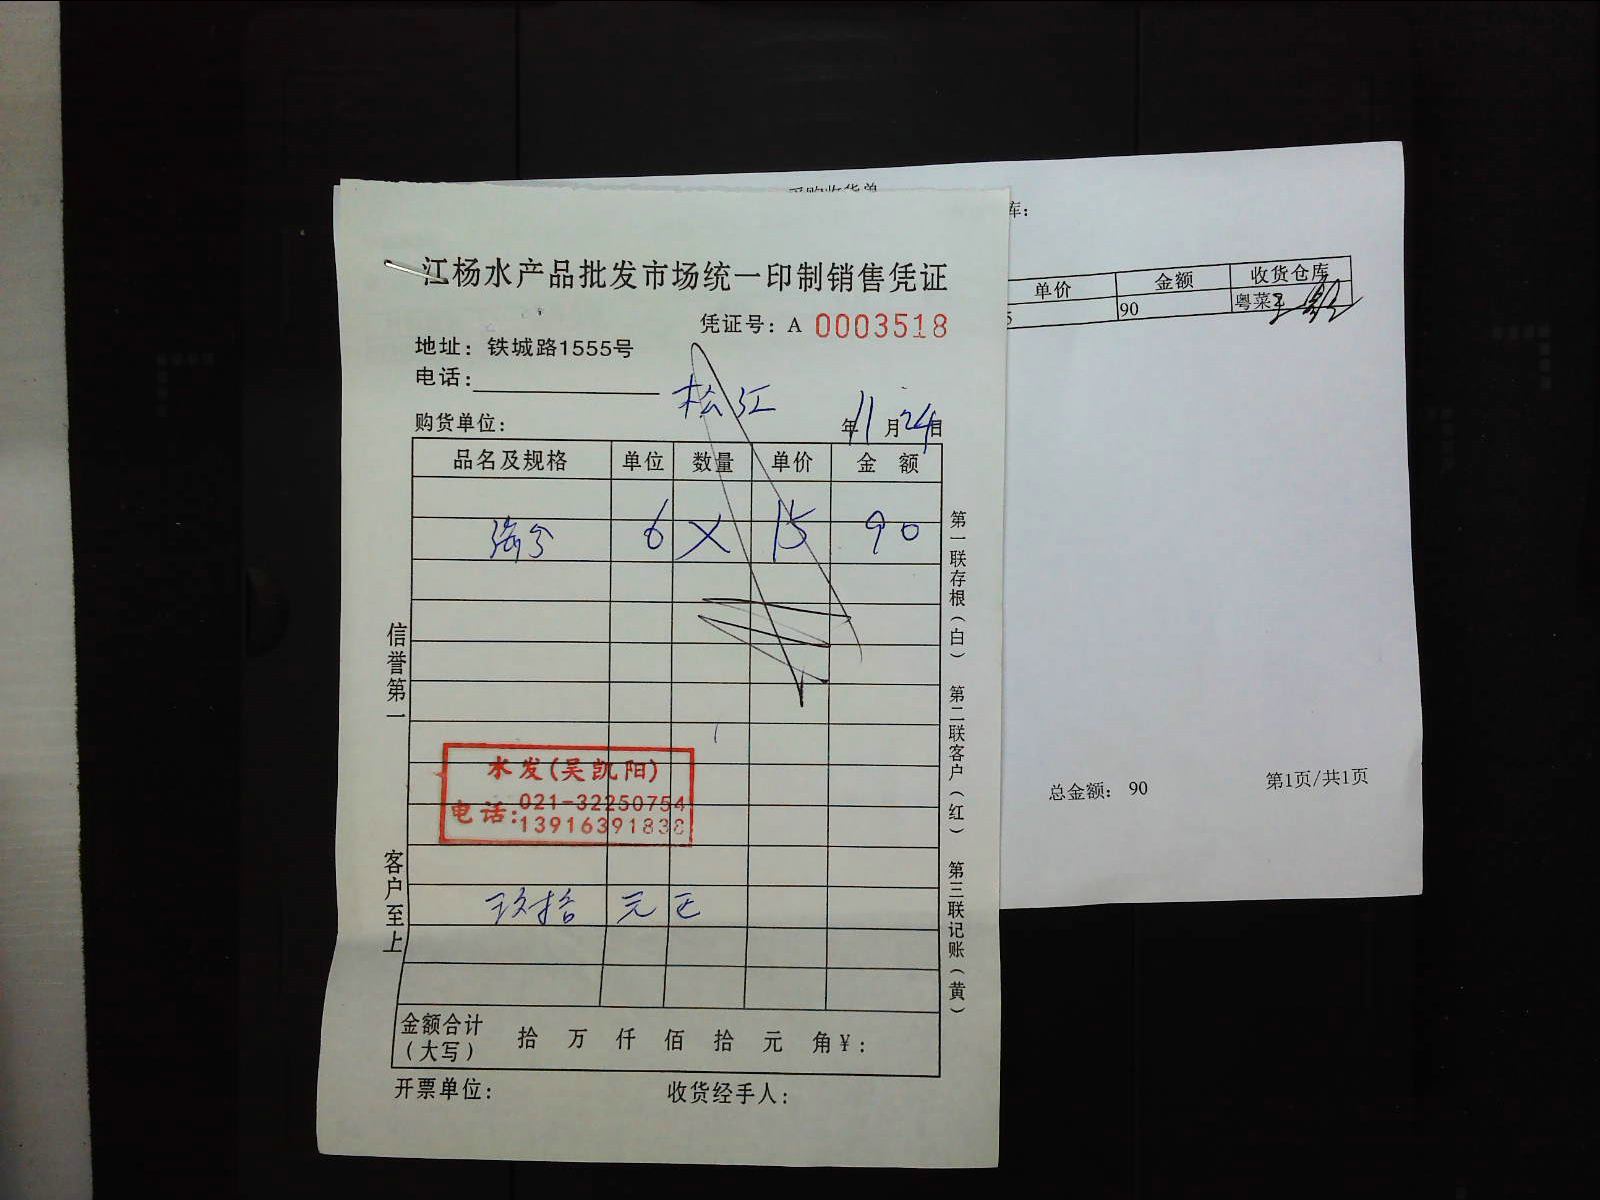 采购收货单
库：
江杨水产品批发市场统一印制销售凭证
凭证号：A 0003518
地址：铁城路1555号
电话：
松江
购货单位： 年11月24日
品名及规格 单位 数量 单价 金额
6 X 15 90
信誉第一
客户至上
水发(吴凯阳)
电话:021-32250754
13916391838
玖拾元正
金额合计（大写） 拾 万 仟 佰 拾 元 角 ¥：
开票单位： 收货经手人：
第一联存根（白） 第二联客户（红） 第三联记账（黄）
单价 金额 收货仓库
5 90 粤菜
总金额： 90 第1页/共1页